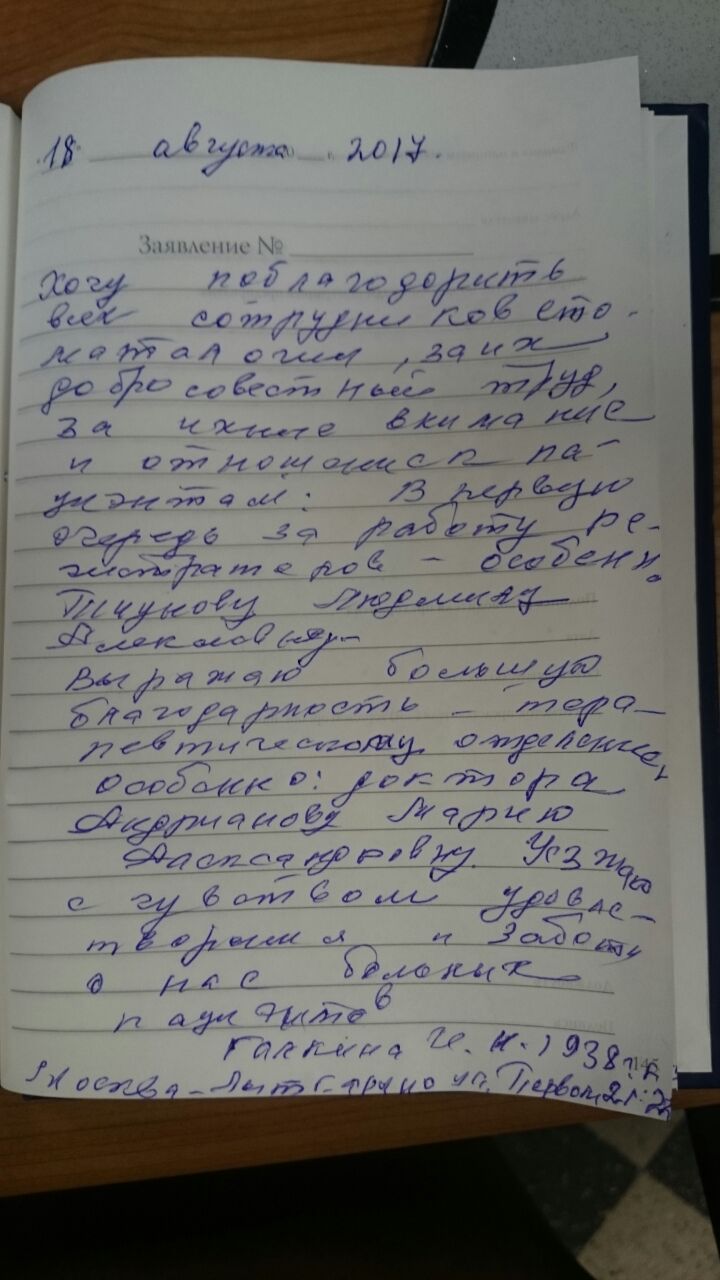 18 августа 2017.
Заявление №
Хочу поблагодорить
всех сотрудников сто-
матталогии, за их
добросовестный труд,
за ихние внимание
и отношениск па-
циэнтам: В первую
очередь за работу ре-
гистратеров - особенно
Тиунову Людмилу
Выражаю большую
благодарность - тера-
певтическому отделению,
особенно: доктора
Андрианову Марию
Александровну. Уезжаю
с чувством удовле-
творения и заботу
о нас больных
пациэнтов
Галкина 1938 г.
Москва - ул.